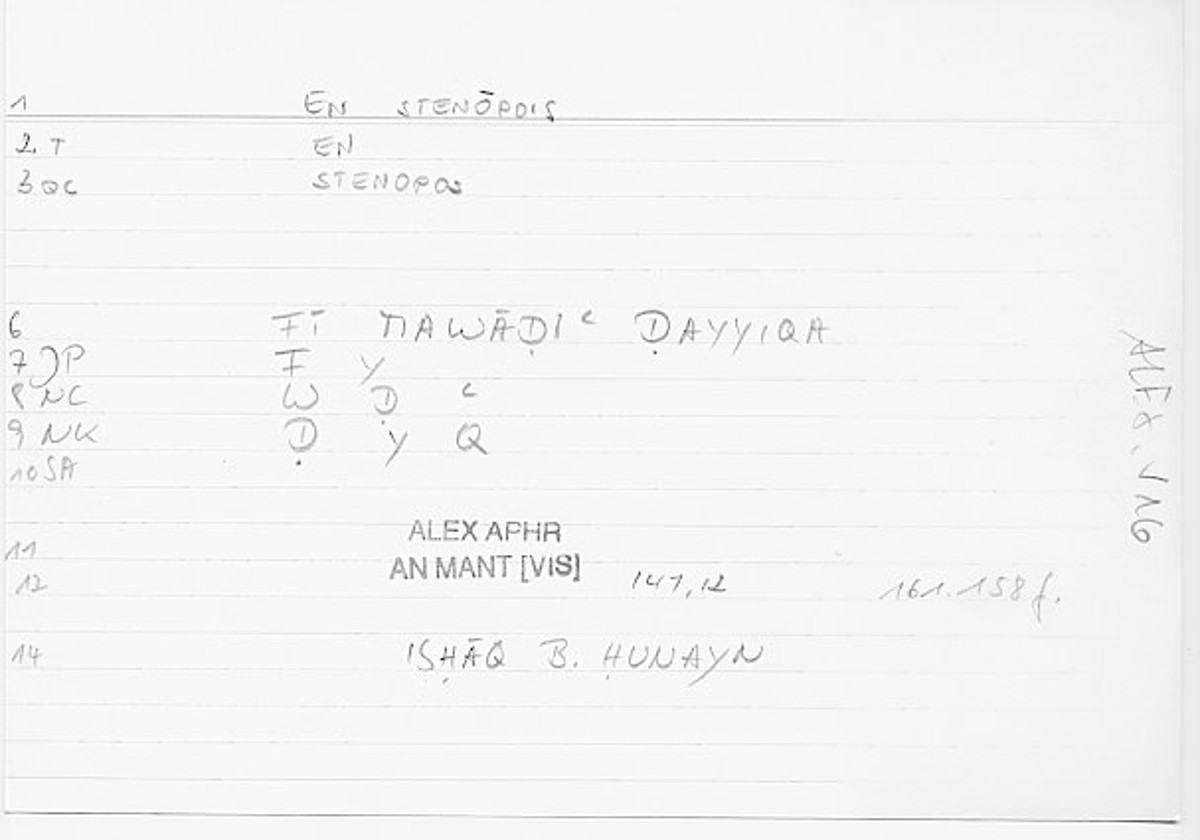 1 EN STENŌPOIS
2 T EN
3 OC STENOPOS
6 FĪ MAWĀḌIʿ ḌAYYIQA
7 JP F Y
8 NC W Ḍ ʿ
9 NK Ḍ Y Q
10 SA
11 ALEX APHR
AN MANT [VIS]
12 147,12 161.158 f.
14 ISḤĀQ B. ḤUNAYN
ALEX. V 16